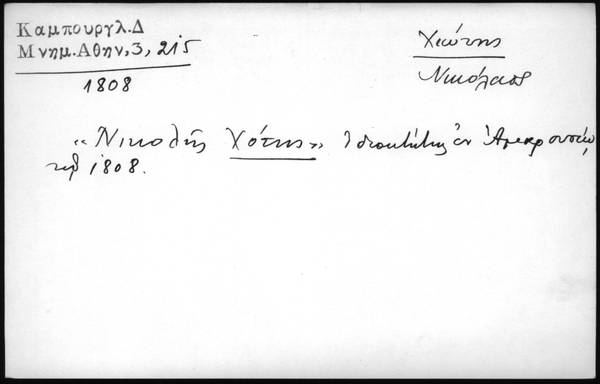 Καμπουργλ.Δ
Μνημ.Αθην,3, 215
1808
Χιώτης
Νικόλαος
" Νικολῆς Χότης " Ἰδιοκτήτης ἐν
τῷ 1808.